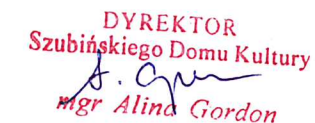 DYREKTOR
Szubińskiego Domu Kultury
mgr Alina Gordon